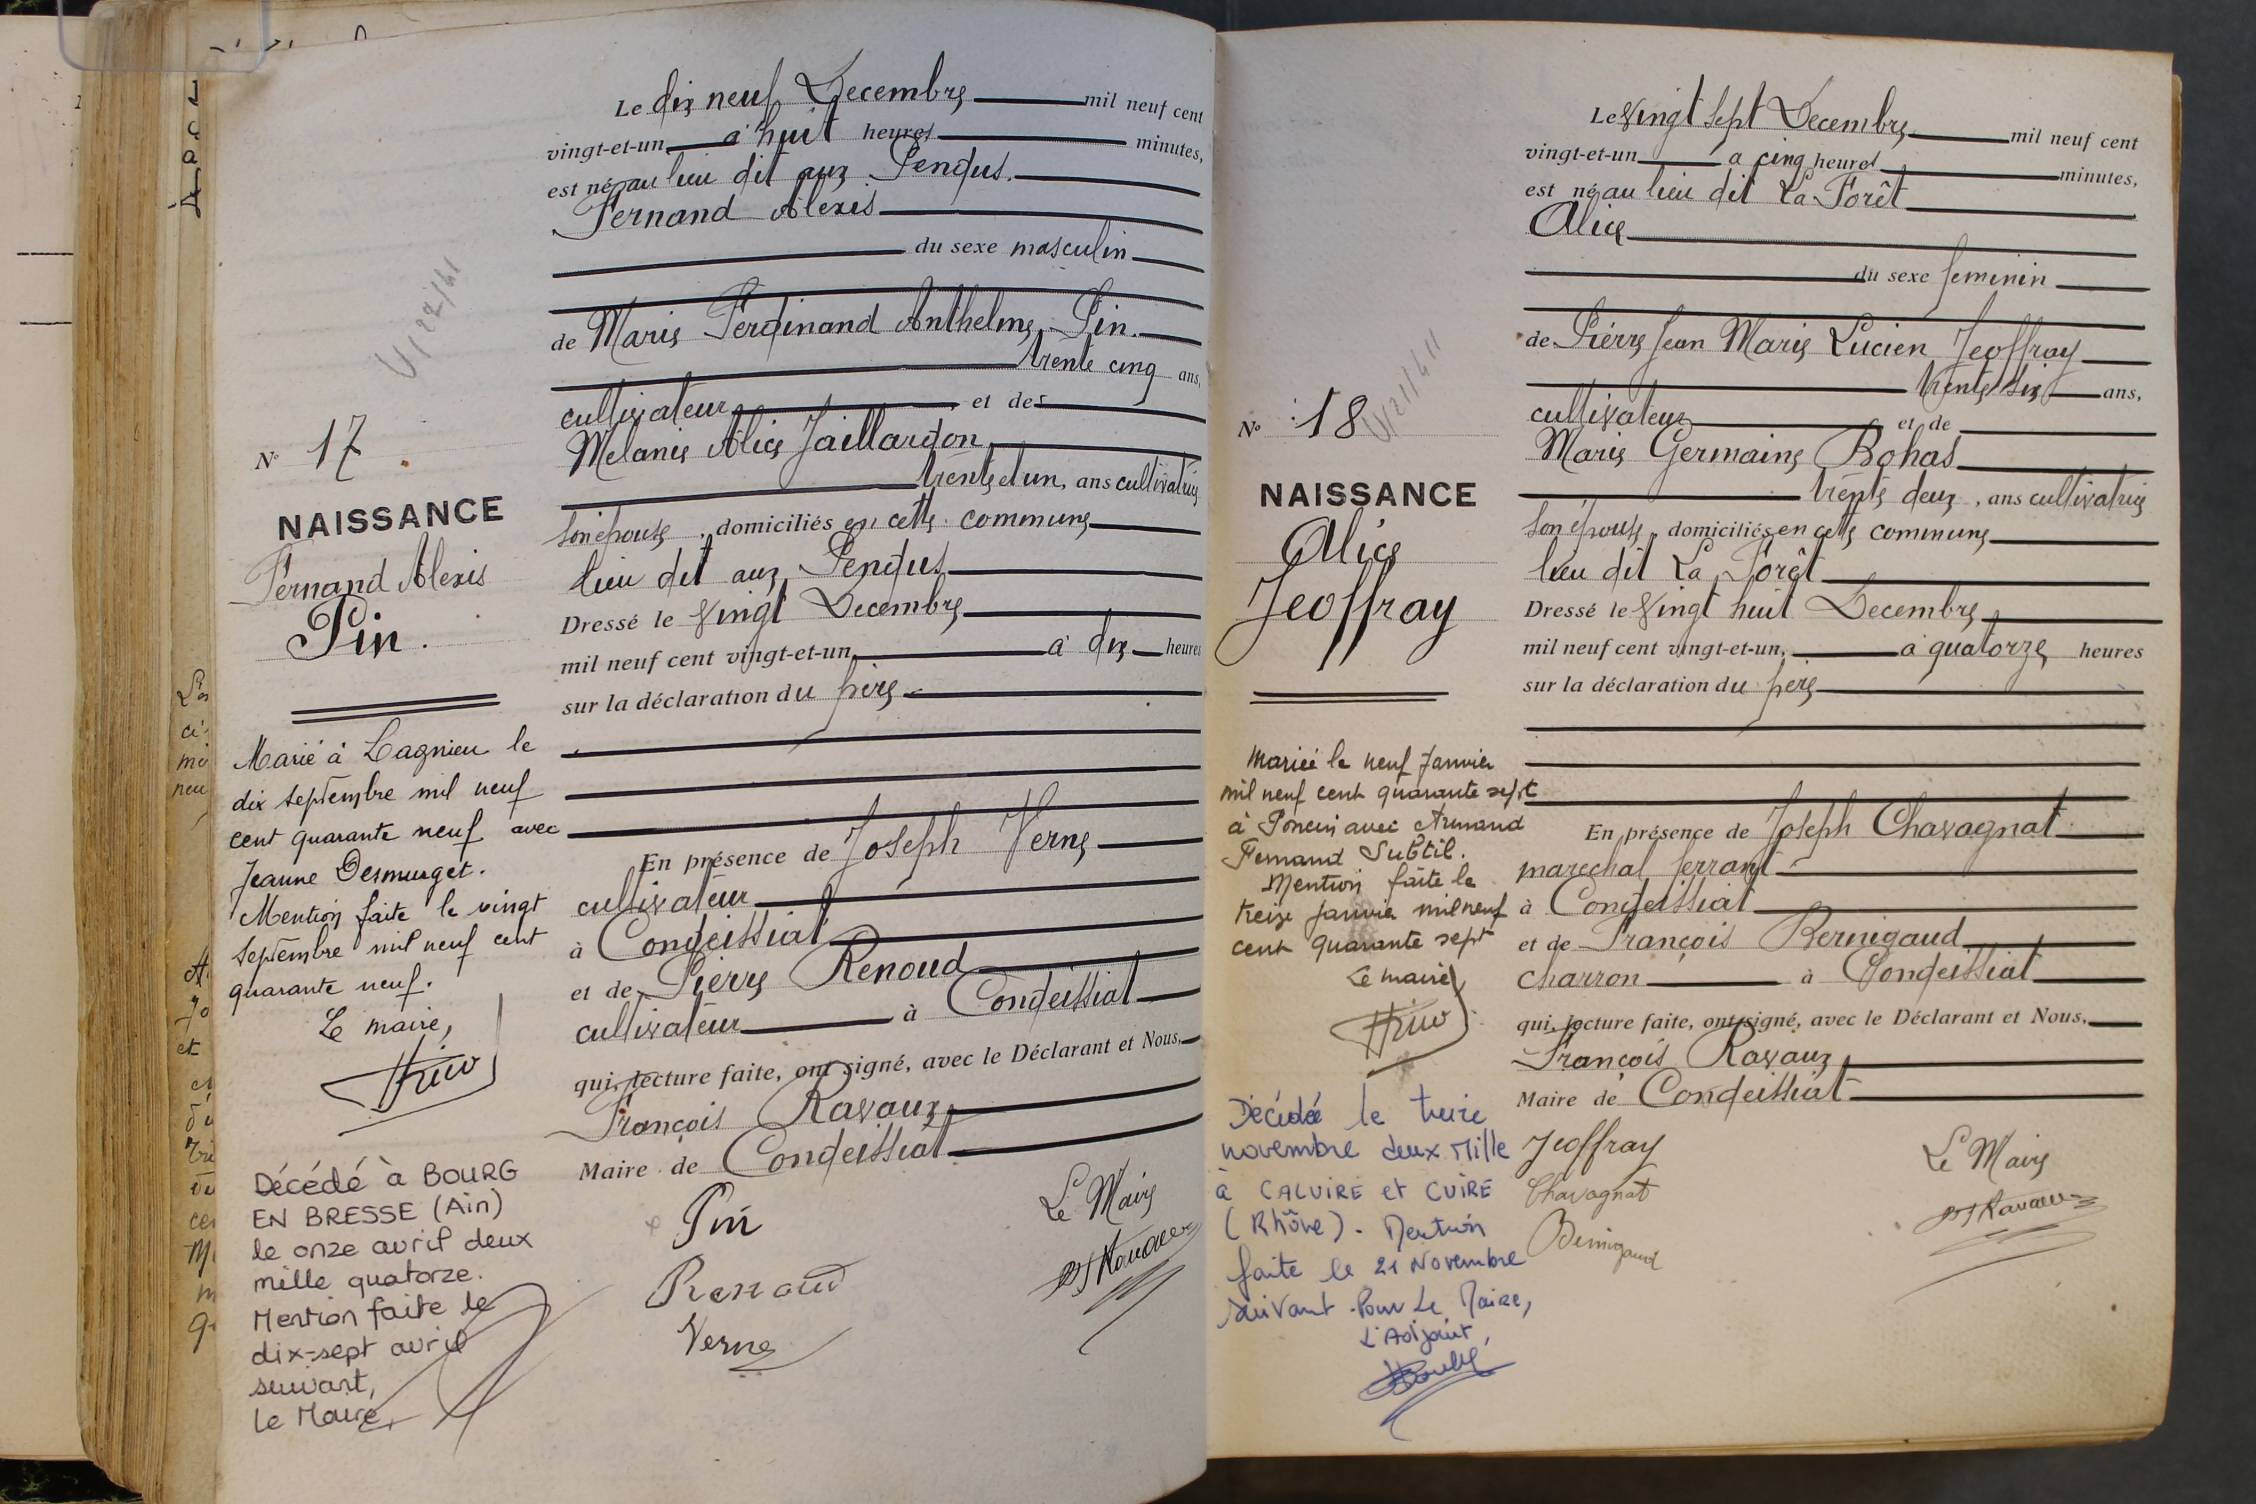 Le dix neuf Decembre mil neuf cent
vingt-et-un à huit heures minutes,
est né au lieu dit aux Pendus.
Fernand Alexis
du sexe masculin
de Marie Ferdinand Anthelme Pin.
trente cinq ans,
cultivateur et de
Melanie Alice Jaillardon
trente et un, ans cultivatrice
son épouse, domiciliés en cette commune
lieu dit aux Pendus
Dressé le Vingt Decembre
mil neuf cent vingt-et-un, à dix heures
sur la déclaration du père
En présence de Joseph Verne
cultivateur
à Condeissiat
et de Pierre Renoud
cultivateur à Condeissiat
qui, lecture faite, ont signé, avec le Déclarant et Nous,
François Ravaux
Maire de Condeissiat
Pin
Le Maire
Renoud
Verne
N° 17
NAISSANCE
Fernand Alexis
Pin.
Marié à Lagnieu le
dix septembre mil neuf
cent quarante neuf avec
Jeanne Desmurget.
Mention faite le vingt
septembre mil neuf cent
quarante neuf.
Le maire,
Décédé à BOURG
EN BRESSE (Ain)
le onze avril deux
mille quatorze.
Mention faite le
dix-sept avril
suivant,
Le Maire,
Le Vingt Sept Decembre mil neuf cent
vingt-et-un à cinq heures minutes,
est né au lieu dit La Forêt
Alice
du sexe feminin
de Pierre Jean Marie Lucien Jeoffray
trente six ans,
cultivateur et de
Marie Germaine Bohas
trente deux, ans cultivatrice
son épouse, domiciliés en cette commune
lieu dit La Forêt
Dressé le Vingt huit Decembre
mil neuf cent vingt-et-un, à quatorze heures
sur la déclaration du père
En présence de Joseph Chavagnat
marechal ferrant
à Condeissiat
et de François Bernigaud
charron à Condeissiat
qui, lecture faite, ont signé, avec le Déclarant et Nous,
François Ravaux
Maire de Condeissiat
Jeoffray
Le Maire
Chavagnat
Bernigaud
N° 18
NAISSANCE
Alice
Jeoffray
Mariée le neuf Janvier
mil neuf cent quarante sept
à Poncin avec Armand
Fernand Subtil.
Mention faite le
treize Janvier mil neuf
cent quarante sept
Le maire
Décédée le treize
novembre deux Mille
à CALUIRE et CUIRE
(Rhône). Mention
faite le 21 Novembre
suivant. Pour Le Maire,
L'Adjoint,